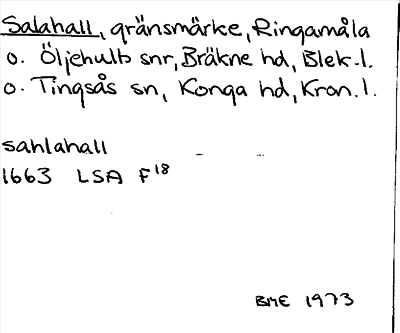 Salahall, gränsmärke, Ringamåla
o. Öljehults snr, Bräkne hd, Blek.l.
o. Tingsås sn, Konga hd, Kron.l.
sahlahall
1663 LSA F18
BME 1973